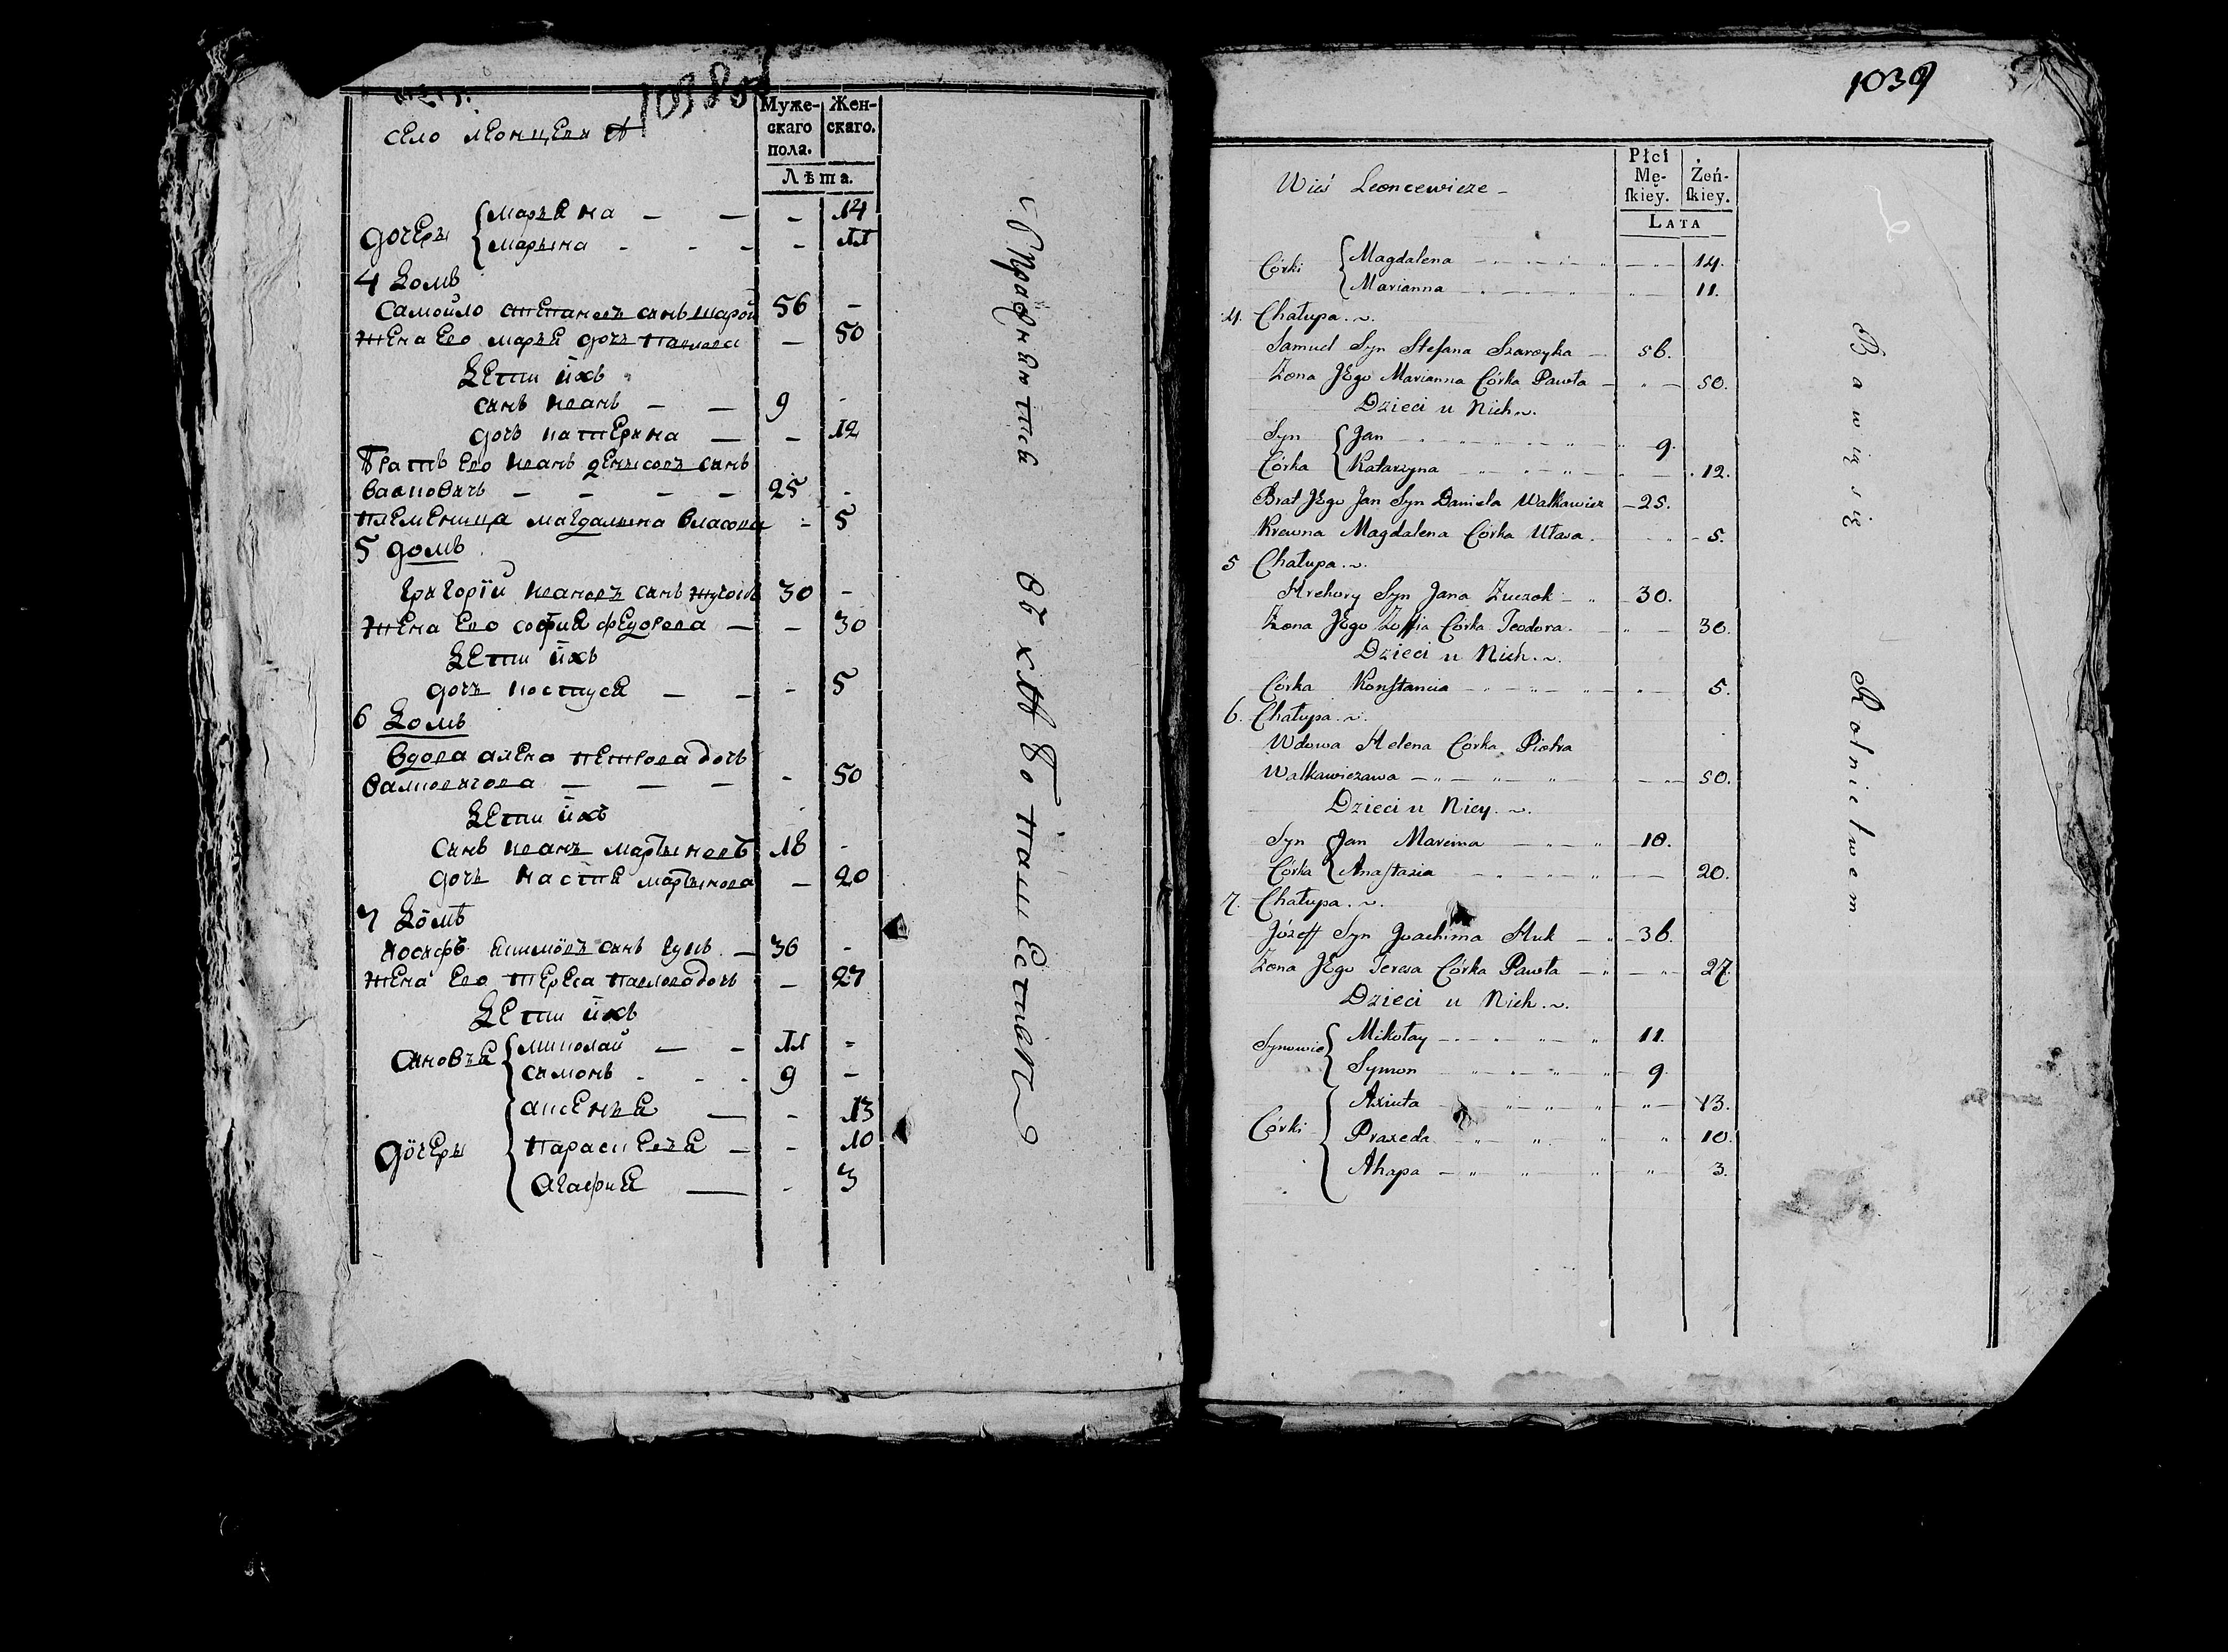 1038
село леонцеви
Муже-
скаго
пола.
Жен-
скаго.
Лѣта.
дочеры { маръяна — — - 14
марына - - - - 11
4 домъ
Самойло степановъ синъ шарой 56 -
жена его маръя дочъ павлова - 50
дети ихъ
синъ иванъ — — 9 -
дочъ катерина — - 12
братъ его иванъ денысовъ синъ
валковичъ - - - - 25 -
племеница магдалына власова - 5
5 домъ
григорій ивановъ синъ 30 -
жена его софия федорова — - 30
дети ихъ
дочъ костуся — - - 5
6 домъ
вдова алена петрова дочъ
валковичова — — - - 50
дети ихъ
синъ иванъ мартыновъ 18 -
дочъ настя мартынова - 20
7 домъ
иосифъ якимовъ синъ гукъ - 36 -
жена его тереса павлова дочъ - 27
дети ихъ
синовъя { миколай — - 11 -
симонъ - - - 9 -
дочеры { аксенъя — - 13
параскевъя - - 10
агафия — - 3
упражняются въ хлѣбопашестве
1039
Wieś Leoncewicze -
Płci
Mę-
skiey.
Żeń-
skiey.
LATA
Córki { Magdalena 14.
Marianna 11.
4. Chałupa.
Samuel Syn Stefana Szaroyka 56.
Żona Jego Marianna Córka Pawła 50.
Dzieci u Nich.
Syn { Jan 9.
Córka { Katarzyna 12.
Brat Jego Jan Syn Daniela Walkawicz 25.
Krewna Magdalena Córka Uława. 5.
5 Chałupa.
Hrehory Syn Jana Zuczok 30.
Żona Jego Zoffia Córka Teodora. 30.
Dzieci u Nich.
Córka Konstancia 5.
6. Chałupa.
Wdowa Helena Córka Piotra
Walkawiczawa 50.
Dzieci u Niey.
Syn { Jan Marcina 18.
Córka { Anastazia 20.
7. Chałupa.
Józeff Syn Joachima Huk 36.
Żona Jego Teresa Córka Pawła 27.
Dzieci u Nich.
Synowie { Mikołay 11.
Symon 9.
Córki { Axiuta 13.
Praxeda 10.
Ahapa 3.
Bawią się Rolnictwem